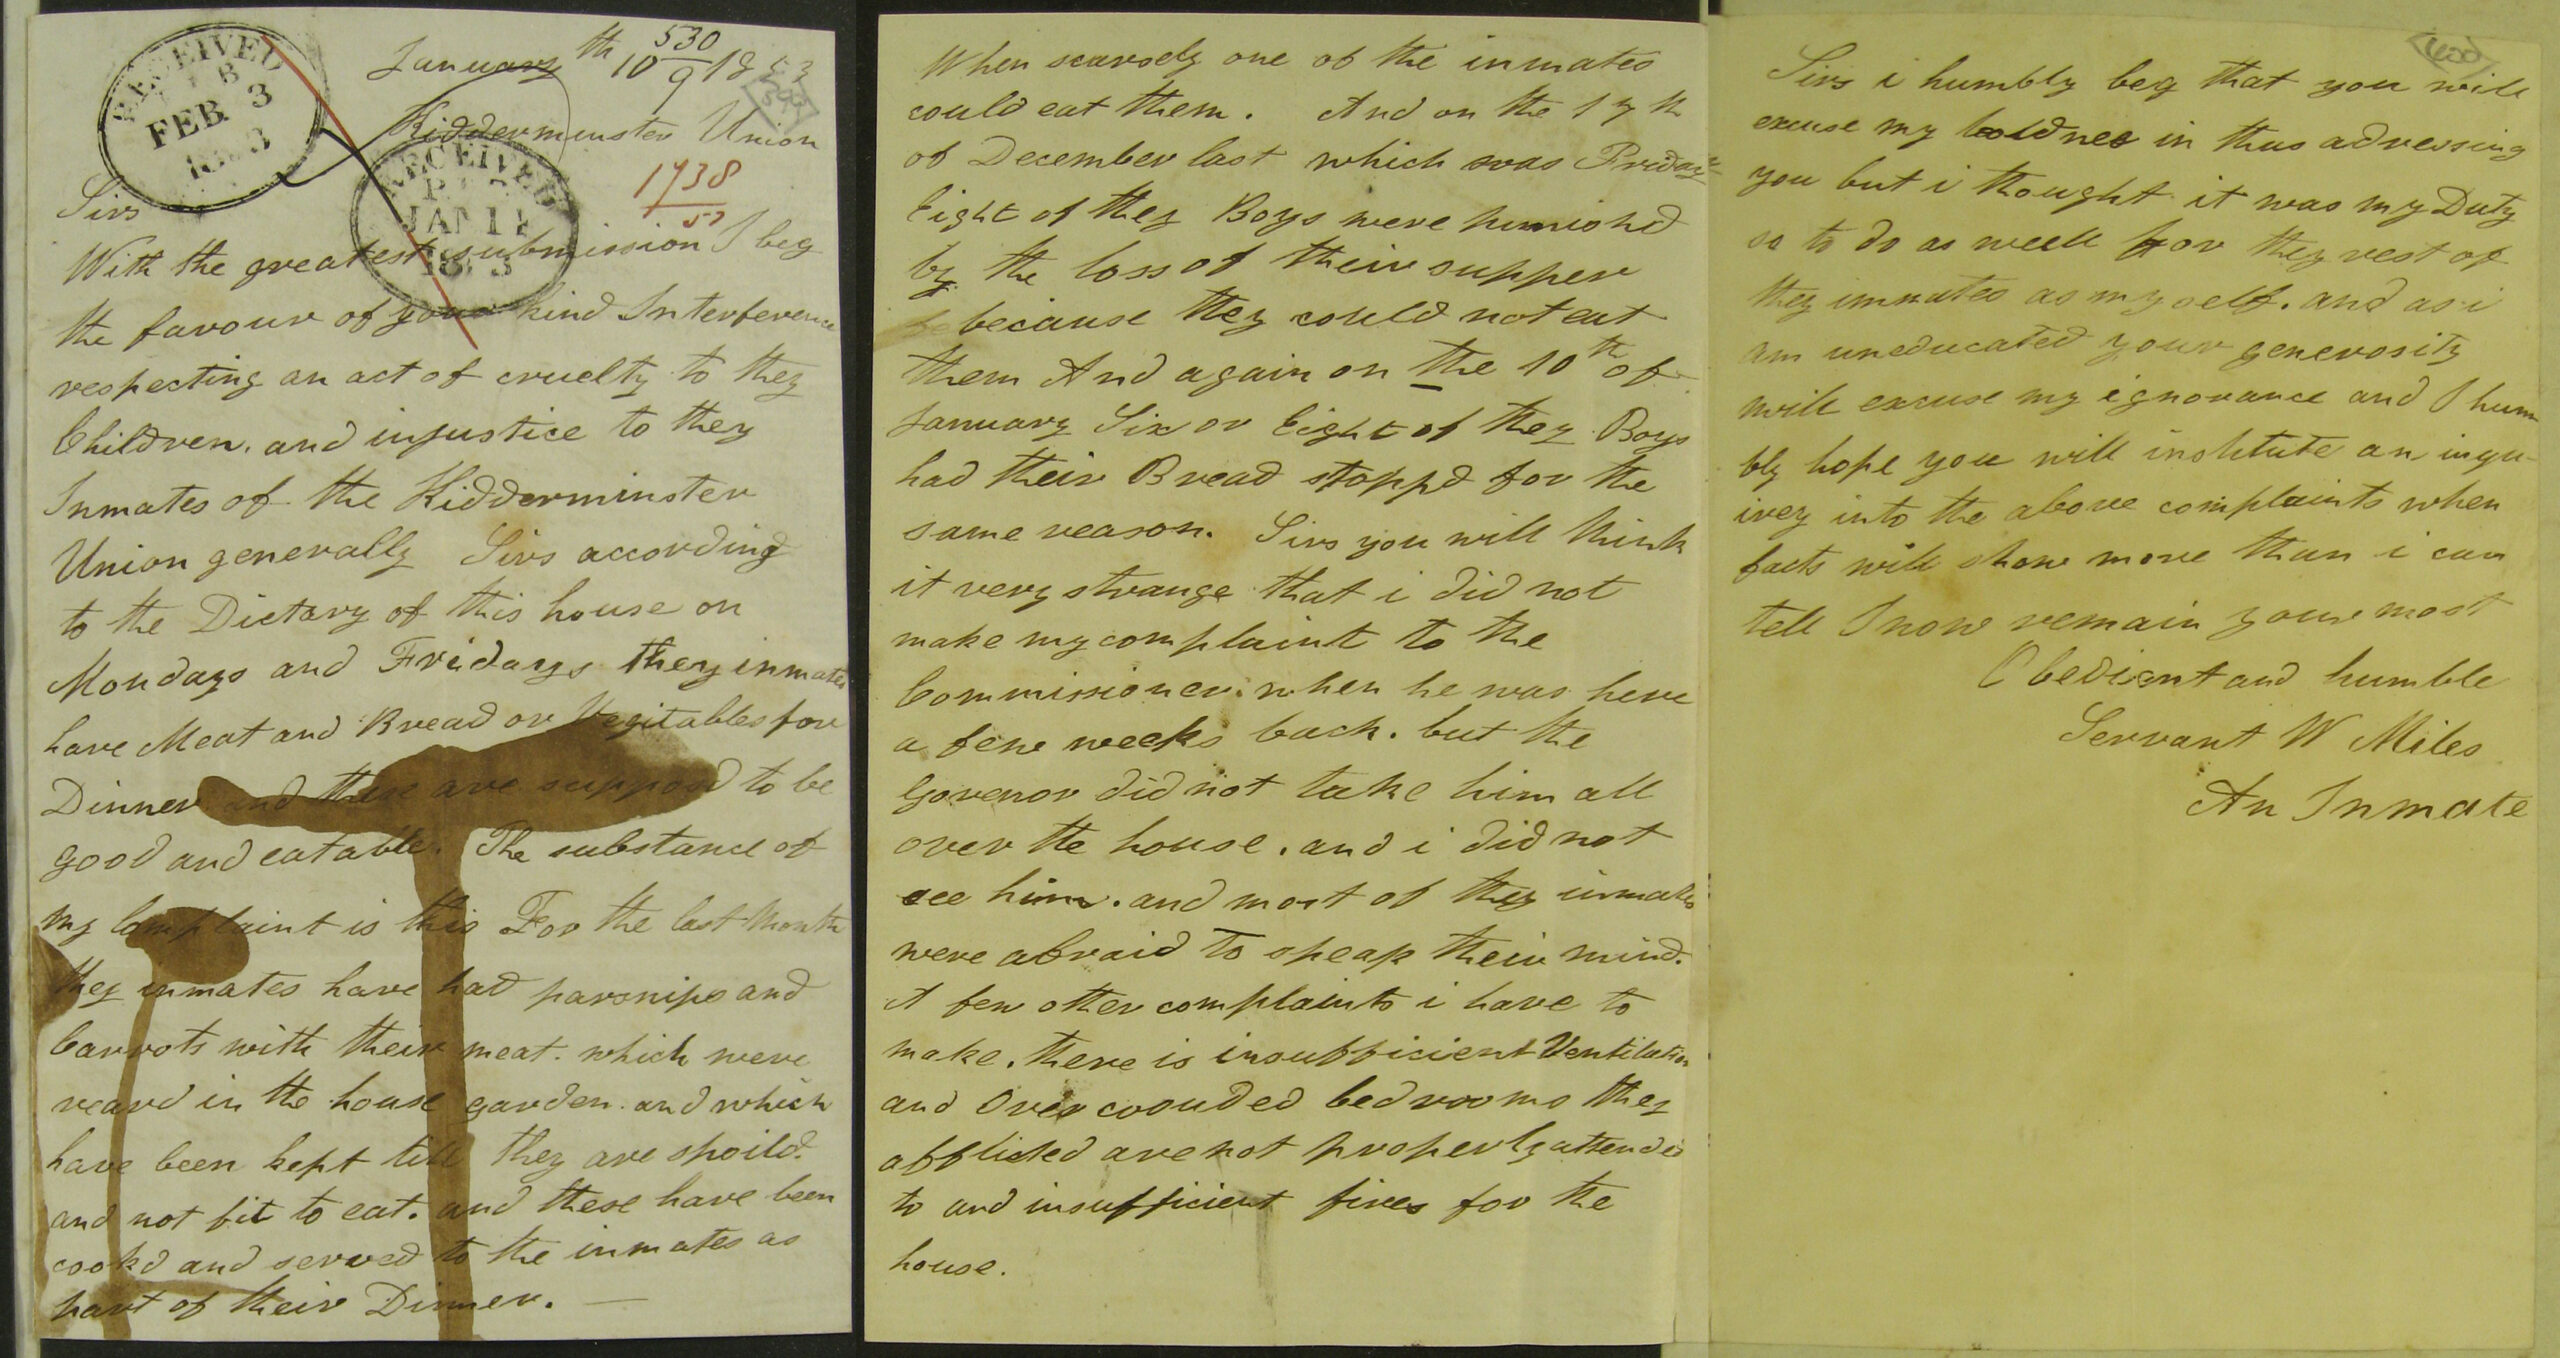 RECEIVED
FEB 3
January 10th 1853
530
9
Kidderminster Union
RECEIVED
JAN 11
1853
1738
53
Sirs
With the greatest submission I beg
the favour of your kind Interference
respecting an act of cruelty to they
Children. and injustice to they
Inmates of the Kidderminster
Union generally Sirs according
to the Dietary of this house on
Mondays and Fridays they inmates
have Meat and Bread or Vegitables for
Dinner and these are supposd to be
good and eatable. The substance of
my Complaint is this For the last Month
they inmates have had parsnips and
Carrots with their meat. which were
reard in the house garden. and which
have been kept till they are spoild.
and not fit to eat. and these have been
cookd and served to the inmates as
part of their Dinner. —
When scarsely one of the inmates
could eat them. And on the 17th
of December last which was Friday
Eight of they Boys were punishd
by the loss of their supper
because they could not eat
them And again on the 10th of
January Six or Eight of they Boys
had their Bread stoppd for the
same reason. Sirs you will think
it very strange that i did not
make my complaint to the
Commissioner. when he was here
a few weeks back. but the
Govenor did not take him all
over the house. and i did not
see him. and most of they inmates
were afraid to speak their mind.
A few other complaints i have to
make. there is insufficient Ventilation
and Over crouded bedrooms they
afflicted are not properly attended
to and insufficient fires for the
house.
Sirs i humbly beg that you will
excuse my boldnes in thus adressing
you but i thought it was my Duty
so to do as well for they rest of
they inmates as myself. and as i
am uneducated your generosity
will excuse my ignorance and I hum
bly hope you will institute an inqu-
irey into the above complaints when
facts will show more than i can
tell I now remain your most
Obedient and humble
Servant W Miles
An Inmate